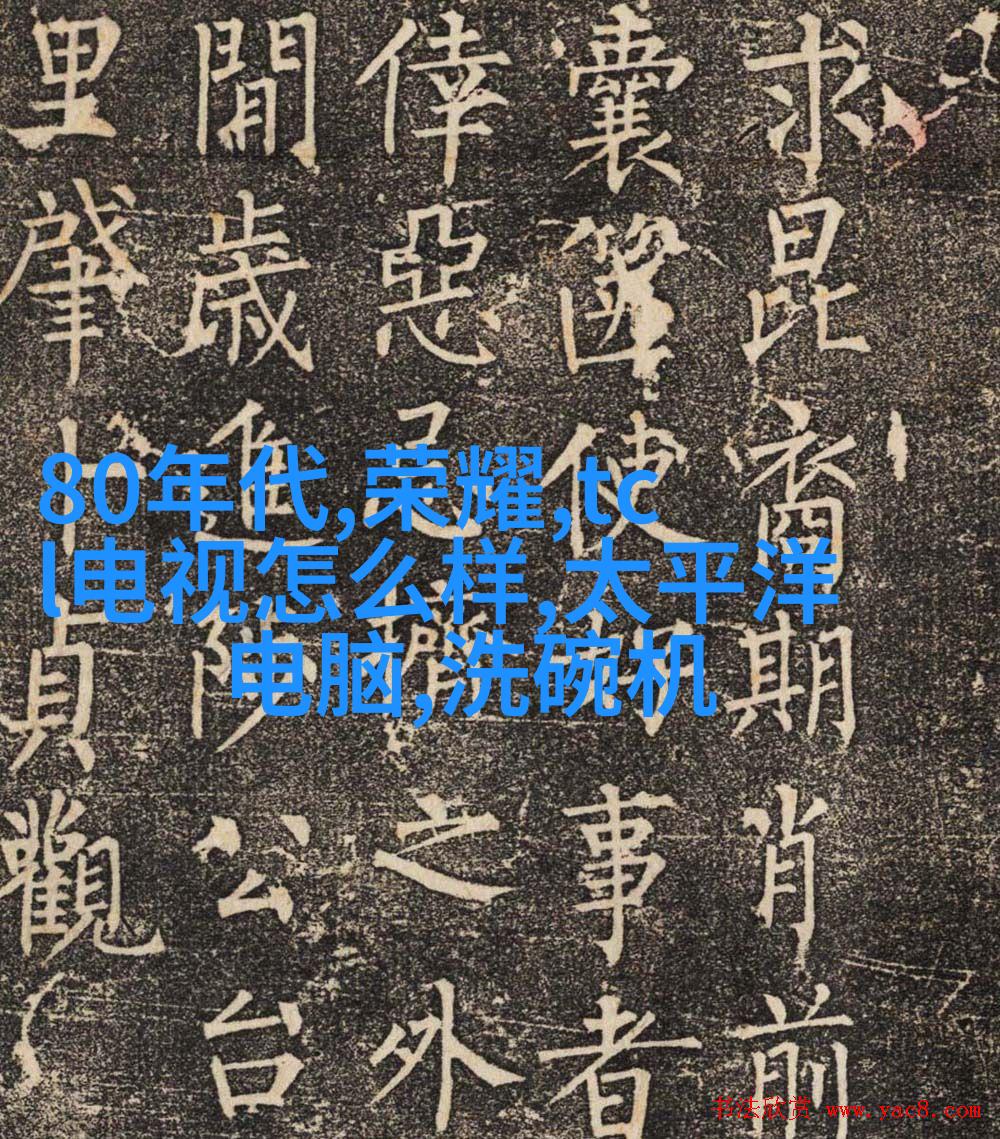 求昆裔期肖前
囊篋使事者
倖惡之外
閒歲進公台
里肇貞觀
80年代,荣耀,tc
l电视怎么样,太平洋
电脑,洗碗机
书法欣赏 www.yac8.com